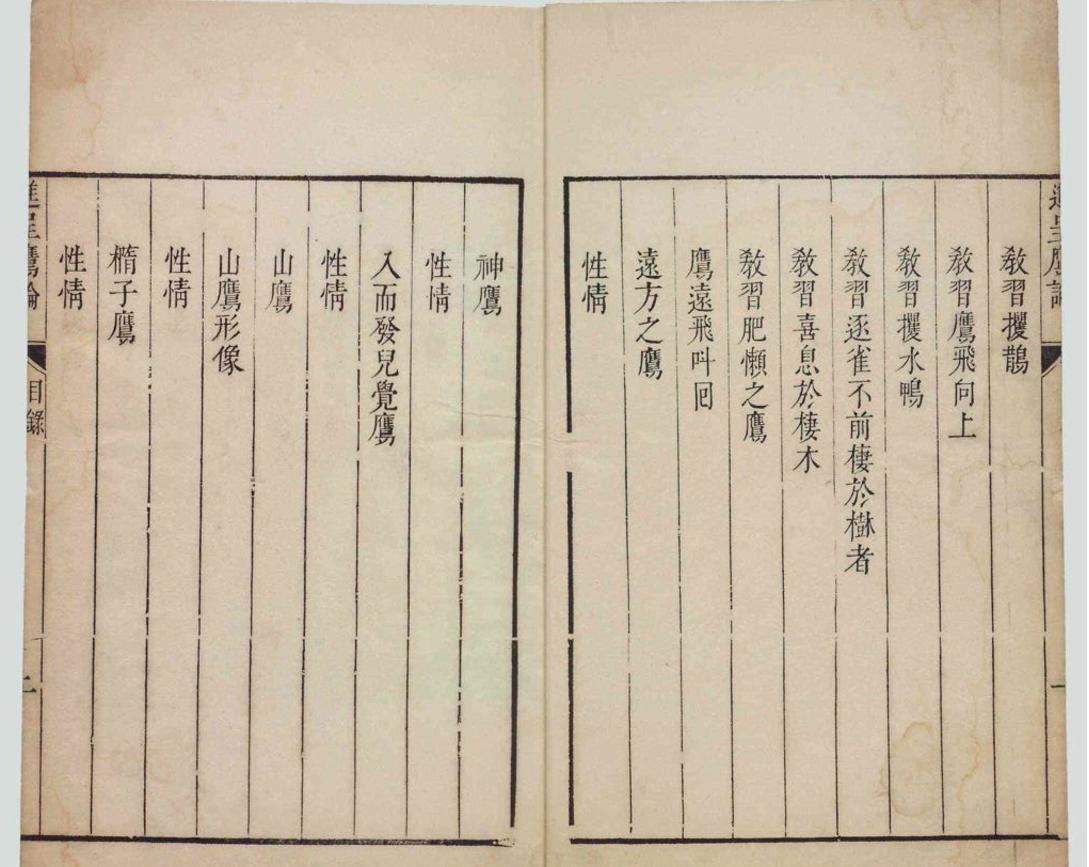 進呈鷹論
一
教習攫鵲
教習鷹飛向上
教習攫水鴨
教習逐雀不前棲於樹者
教習喜息於棲木
教習肥懶之鷹
鷹遠飛呌囘
遠方之鷹
性情
神鷹
性情
入而發兒覺鷹
性情
山鷹
山鷹形像
性情
橢子鷹
性情
進呈鷹論
目錄
二